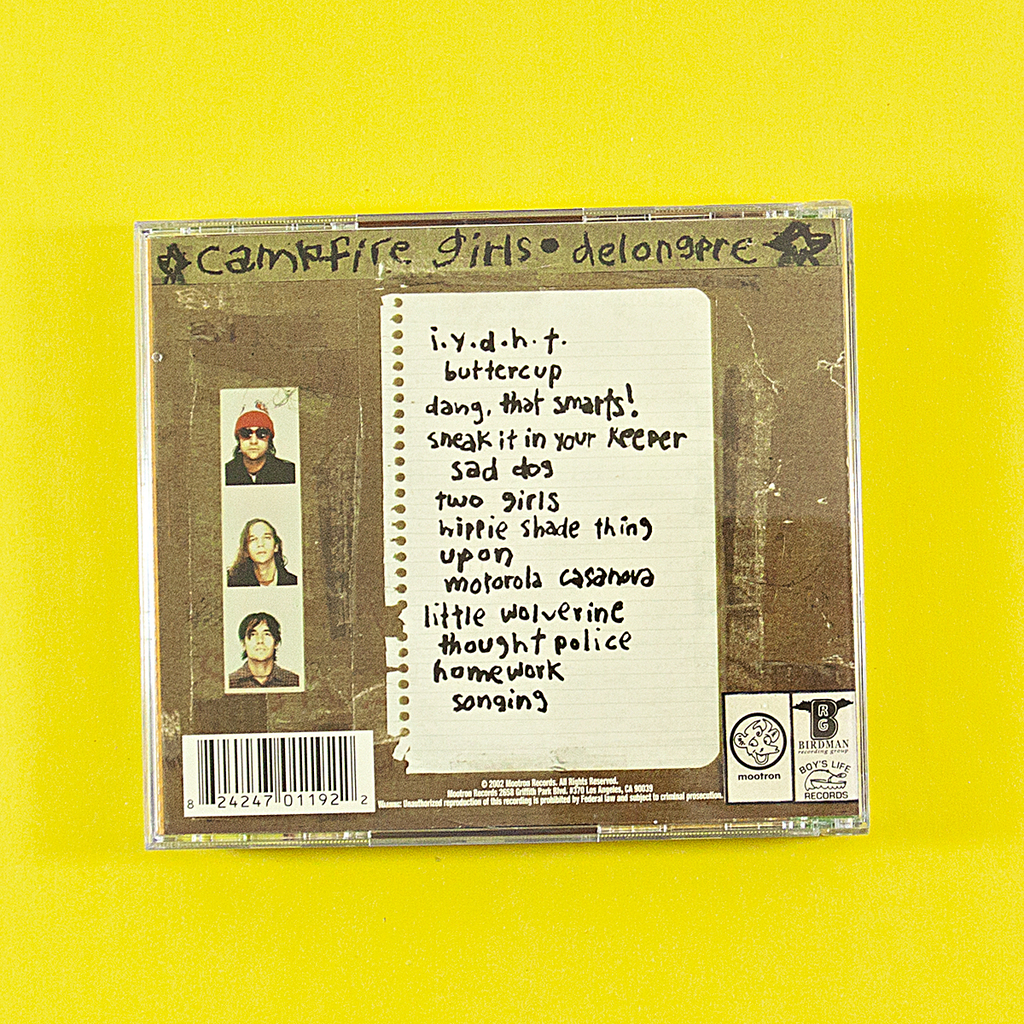 campfire girls • delongpre
i.y.d.h.t.
buttercup
dang, that smarts!
sneak it in your keeper
sad dog
two girls
hippie shade thing
upon
motorola casanova
little wolverine
thought police
homework
songing
8 24247 01192 2
© 2002 Mootron Records. All Rights Reserved.
Mootron Records 2658 Griffith Park Blvd. #370 Los Angeles, CA 90039
Warning: Unauthorized reproduction of this recording is prohibited by Federal law and subject to criminal prosecution.
mootron
B
R
G
BIRDMAN
recording group
BOY'S LIFE
RECORDS